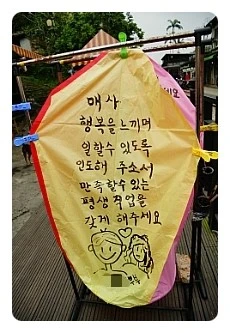 매사
행복을 느끼며
일할수 있도록
인도해 주소서
만족할수 있는
평생 직업을
갖게 해주세요
세요